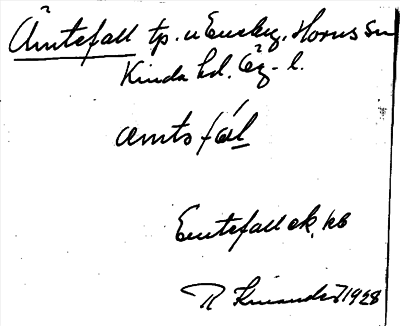 Åmtefall tp. u Eneby, Horns sn
Kinda hd. Ög. l.
amtsfál
Emtefall ek. kb
R Kinander 1928